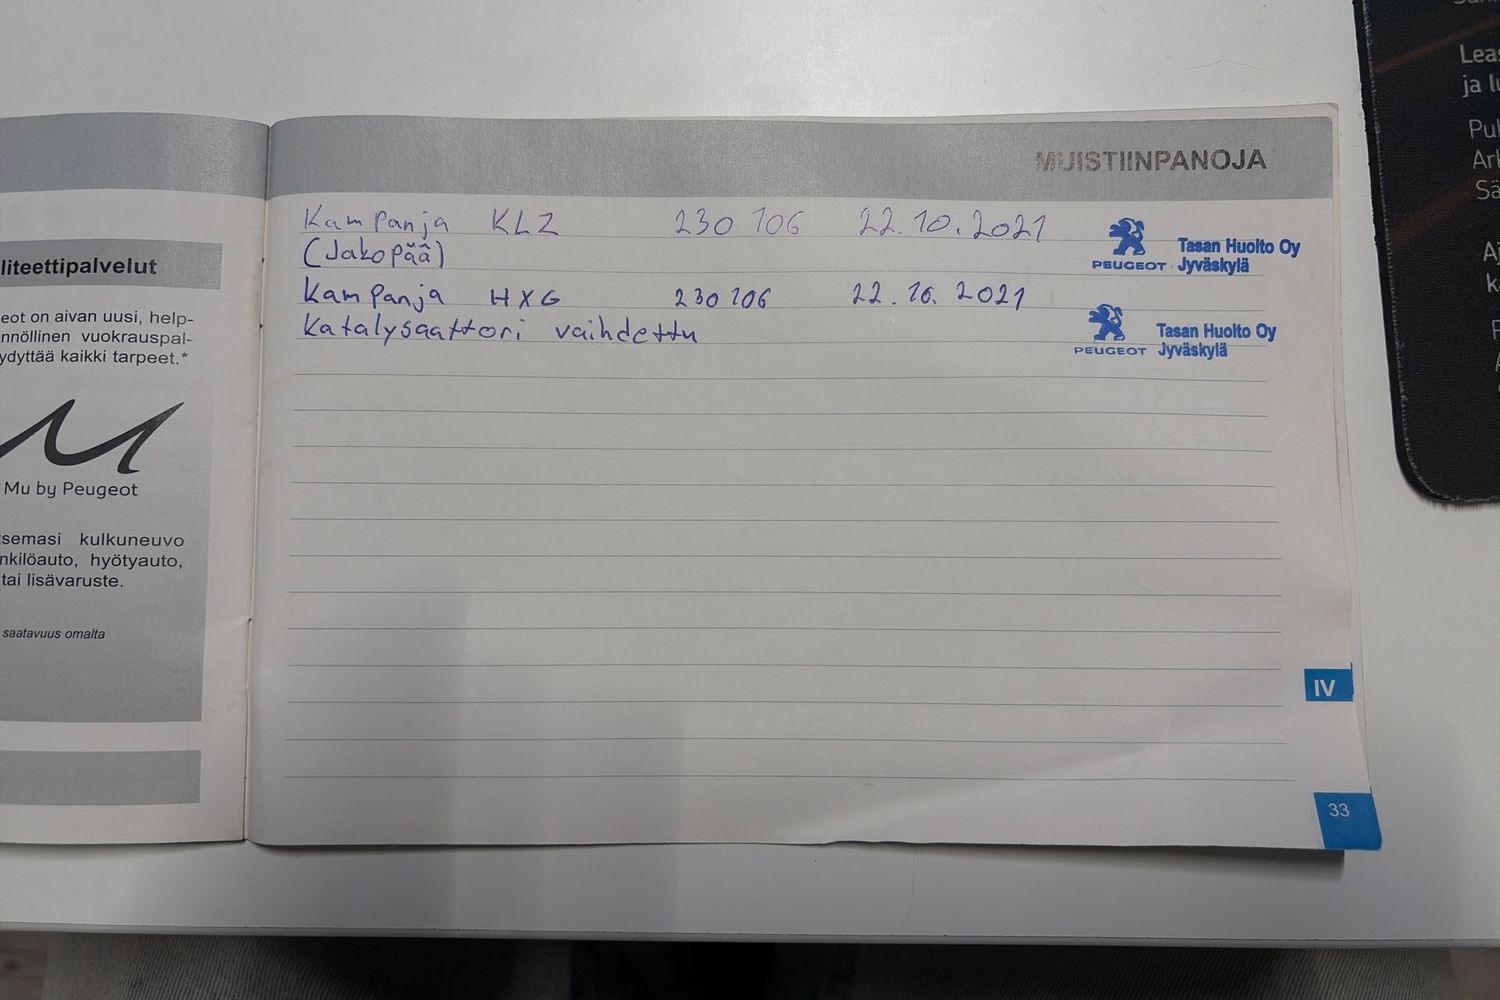 MUISTIINPANOJA
Kampanja KLZ 230 106 22.10.2021
(Jakopää)
PEUGEOT Tasan Huolto Oy
Jyväskylä
Kampanja HXG 230 106 22.10.2021
Katalysaattori vaihdettu
PEUGEOT Tasan Huolto Oy
Jyväskylä
IV
33
liteettipalvelut
eot on aivan uusi, help-
nnöllinen vuokrauspal-
ydyttää kaikki tarpeet.*
Mu by Peugeot
semasi kulkuneuvo
nkilöauto, hyötyauto,
tai lisävaruste.
saatavuus omalta
Leas
ja lu
Pul
Ark
Sä
Aj